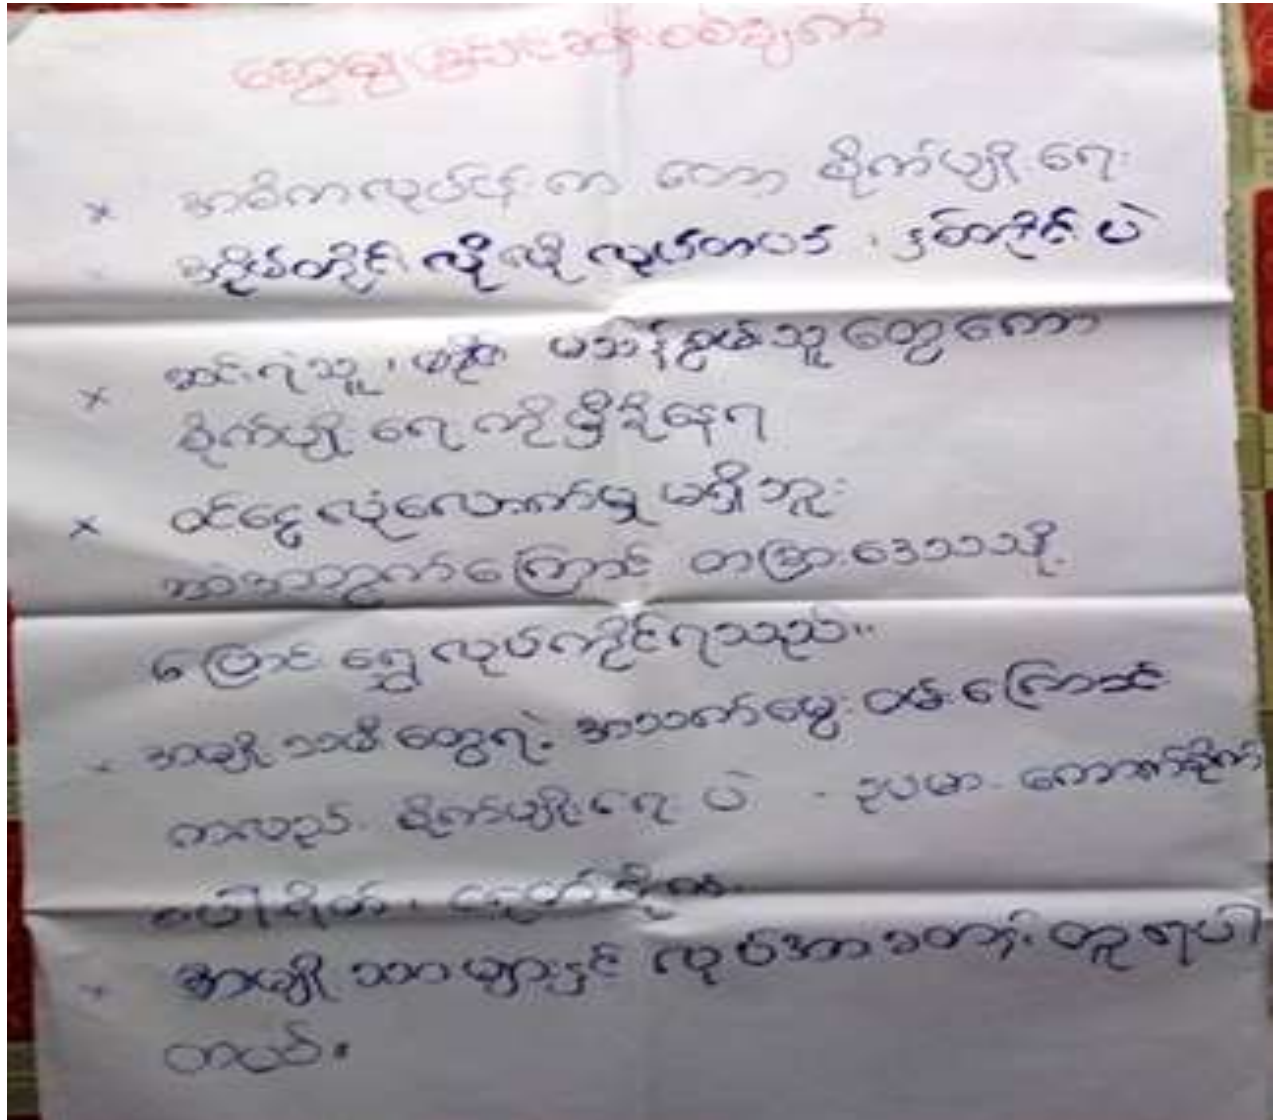 တွေ့ရှိချက်
× အဓိကလုပ်ငန်းက တော့ စိုက်ပျိုးရေး
အိမ်တိုင်းလိုလို လုပ်တယ်၊ နှစ်တိုင်းပဲ
× ဆင်းရဲသူ၊ မသန်စွမ်းသူတွေကော
စိုက်ပျိုးရေးကိုမှီခိုနေရ
× ဝင်ငွေလုံလောက်မှု မရှိဘူး
အဲ့အတွက်ကြောင့် တခြားဒေသသို့
ပြောင်းရွှေ့လုပ်ကိုင်ရသည်။
- အမျိုးသမီးတွေရဲ့ အသက်မွေးဝမ်းကြောင်း
ကလည်း စိုက်ပျိုးရေးပဲ - ဥပမာ- ကောက်စိုက်
စပါးရိတ်၊
- အမျိုးသားများနှင့် လုပ်အားခတန်းတူရပါ
တယ်။